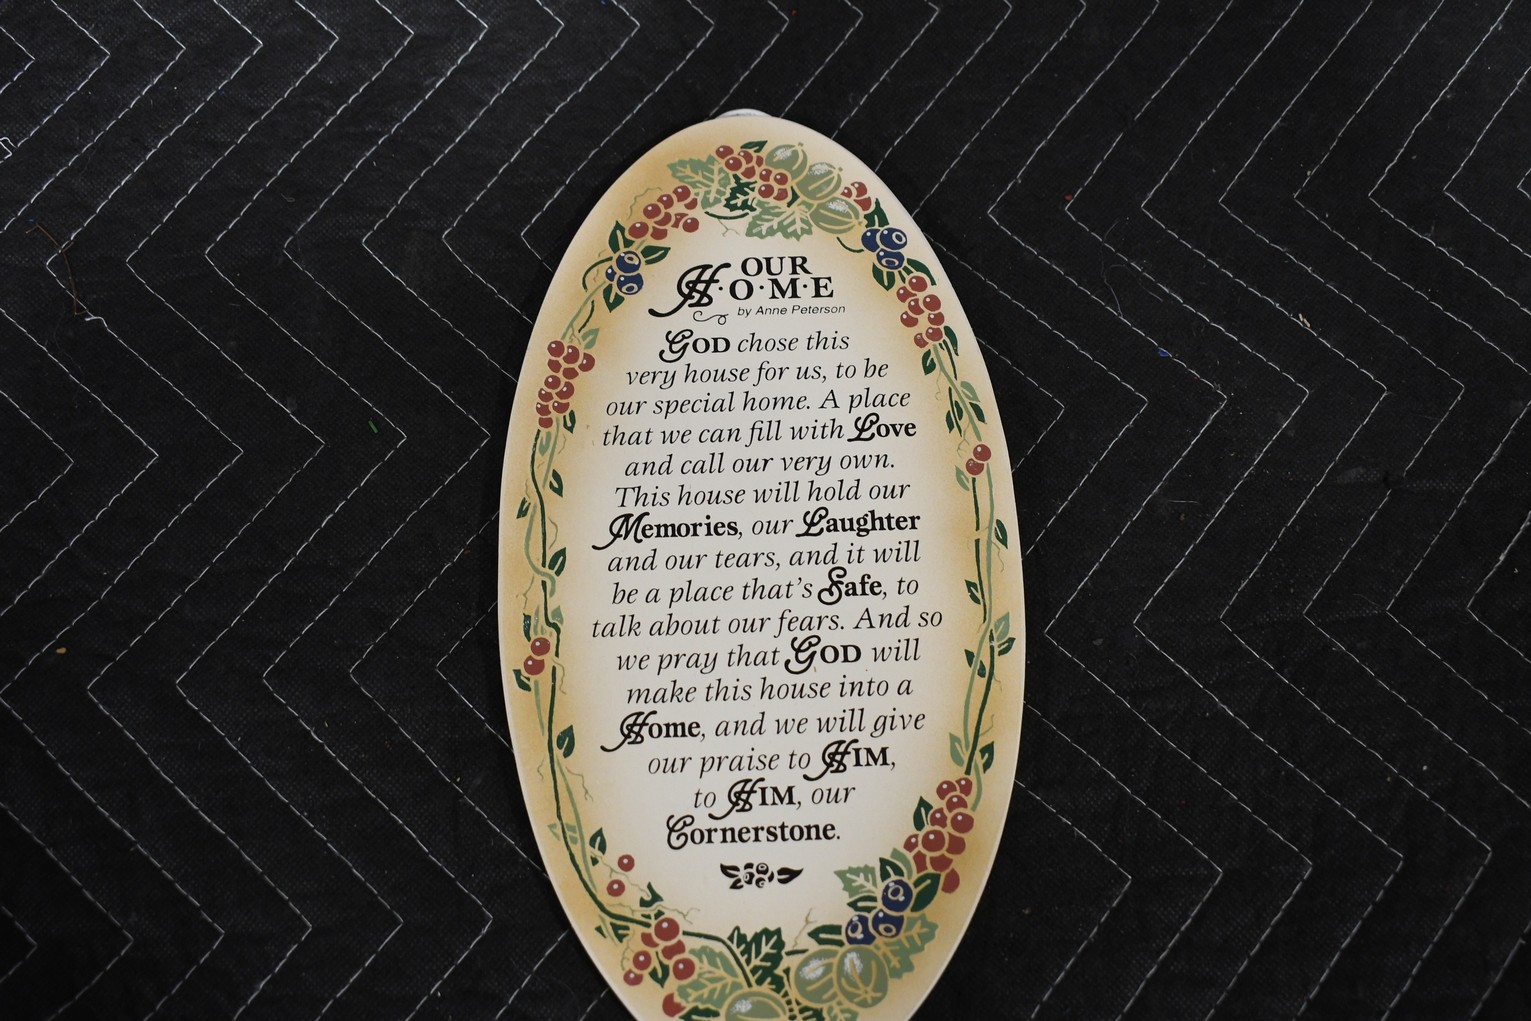 OUR
H·O·M·E
by Anne Peterson
GOD chose this
very house for us, to be
our special home. A place
that we can fill with Love
and call our very own.
This house will hold our
Memories, our Laughter
and our tears, and it will
be a place that's Safe, to
talk about our fears. And so
we pray that GOD will
make this house into a
Home, and we will give
our praise to HIM,
to HIM, our
Cornerstone.